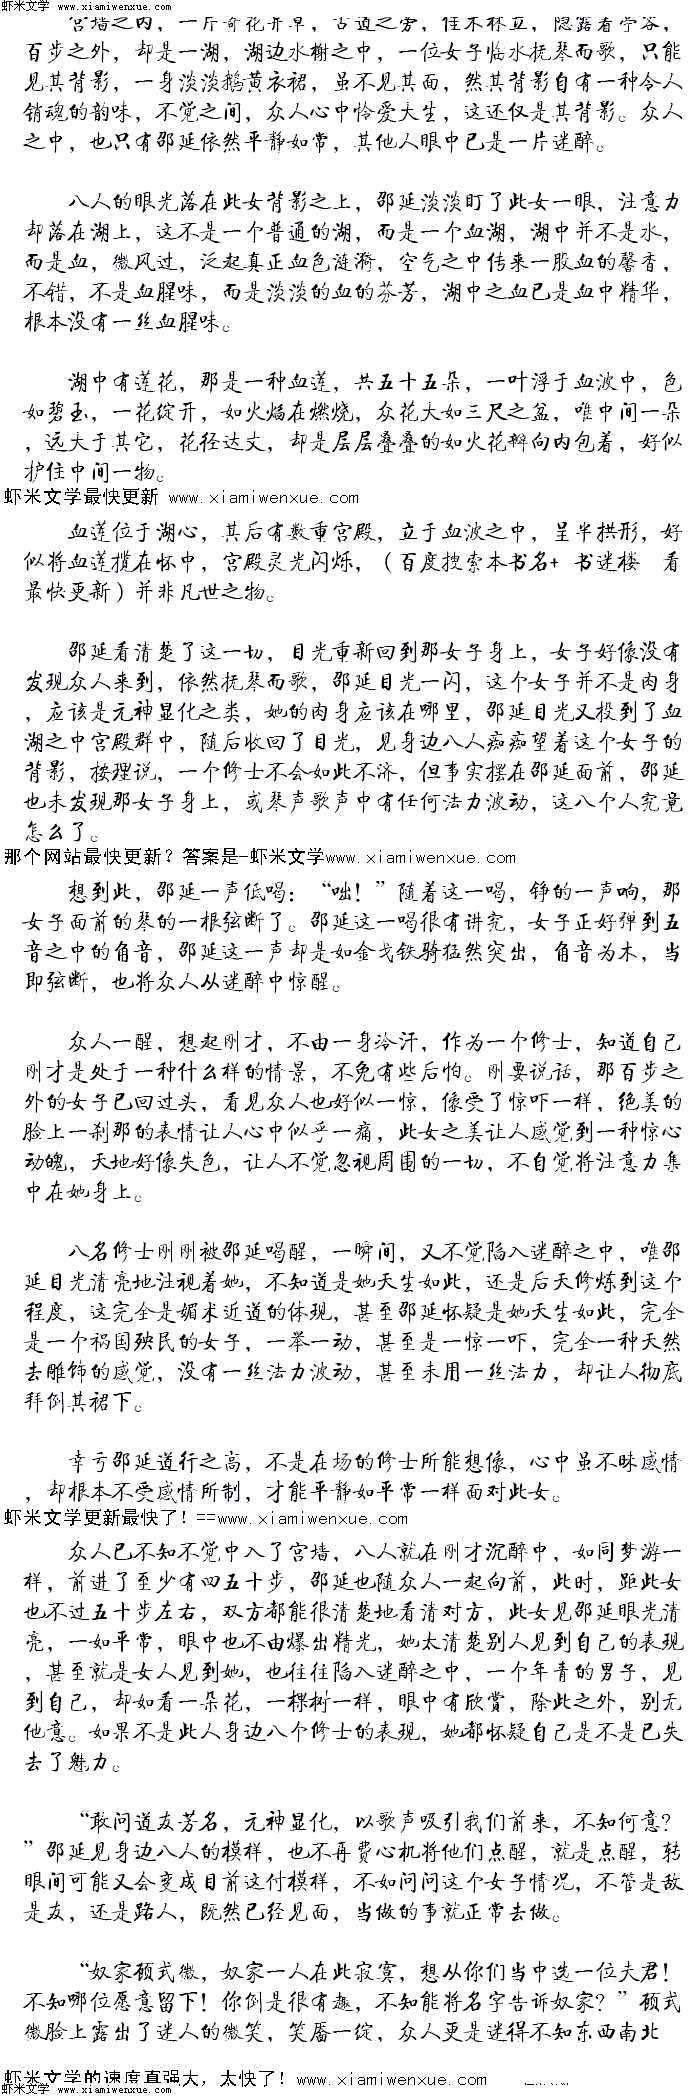 虾米文学 www.xiamiwenxue.com
宫墙之内，一片奇花异草，古道之旁，佳木林立，隐露着亭谷，
百步之外，却是一湖，湖边水榭之中，一位女子临水抚琴而歌，只能
见其背影，一身淡淡鹅黄衣裙，虽不见其面，然其背影自有一种令人
销魂的韵味，不觉之间，众人心中怜爱大生，这还仅是其背影。众人
之中，也只有邵延依然平静如常，其他人眼中已是一片迷醉。
八人的眼光落在此女背影之上，邵延淡淡盯了此女一眼，注意力
却落在湖上，这不是一个普通的湖，而是一个血湖，湖中并不是水，
而是血，微风过，泛起真正血色涟漪，空气之中传来一股血的馨香，
不错，不是血腥味，而是淡淡的血的芬芳，湖中之血已是血中精华，
根本没有一丝血腥味。
湖中有莲花，那是一种血莲，共五十五朵，一叶浮于血波中，色
如碧玉，一花绽开，如火焰在燃烧，众花大如三尺之盆，唯中间一朵
，远大于其它，花径达丈，却是层层叠叠的如火花瓣向内包着，好似
护住中间一物。
虾米文学最快更新 www.xiamiwenxue.com
血莲位于湖心，其后有数重宫殿，立于血波之中，呈半拱形，好
似将血莲揽在怀中，宫殿灵光闪烁，（百度搜索本书名+ 书迷楼 看
最快更新）并非凡世之物。
邵延看清楚了这一切，目光重新回到那女子身上，女子好像没有
发现众人来到，依然抚琴而歌，邵延目光一闪，这个女子并不是肉身
，应该是元神显化之类，她的肉身应该在哪里，邵延目光又投到了血
湖之中宫殿群中，随后收回了目光，见身边八人痴痴望着这个女子的
背影，按理说，一个修士不会如此不济，但事实摆在邵延面前，邵延
也未发现那女子身上，或琴声歌声中有任何法力波动，这八个人究竟
怎么了。
那个网站最快更新？答案是-虾米文学www.xiamiwenxue.com
想到此，邵延一声低喝：“咄！”随着这一喝，铮的一声响，那
女子面前的琴的一根弦断了。邵延这一喝很有讲究，女子正好弹到五
音之中的角音，邵延这一声却是如金戈铁骑猛然突出，角音为木，当
即弦断，也将众人从迷醉中惊醒。
众人一醒，想起刚才，不由一身冷汗，作为一个修士，知道自己
刚才是处于一种什么样的情景，不免有些后怕。刚要说话，那百步之
外的女子已回过头，看见众人也好似一惊，像受了惊吓一样，绝美的
脸上一刹那的表情让人心中似乎一痛，此女之美让人感觉到一种惊心
动魄，天地好像失色，让人不觉忽视周围的一切，不自觉将注意力集
中在她身上。
八名修士刚刚被邵延喝醒，一瞬间，又不觉陷入迷醉之中，唯邵
延目光清亮地注视着她，不知道是她天生如此，还是后天修炼到这个
程度，这完全是媚术近道的体现，甚至邵延怀疑是她天生如此，完全
是一个祸国殃民的女子，一举一动，甚至是一惊一吓，完全一种天然
去雕饰的感觉，没有一丝法力波动，甚至未用一丝法力，却让人彻底
拜倒其裙下。
幸亏邵延道行之高，不是在场的修士所能想像，心中虽不昧感情
，却根本不受感情所制，才能平静如平常一样面对此女。
虾米文学更新最快了！==www.xiamiwenxue.com
众人已不知不觉中入了宫墙，八人就在刚才沉醉中，如同梦游一
样，前进了至少有四五十步，邵延也随众人一起向前，此时，距此女
也不过五十步左右，双方都能很清楚地看清对方，此女见邵延眼光清
亮，一如平常，眼中也不由爆出精光，她太清楚别人见到自己的表现
，甚至就是女人见到她，也往往陷入迷醉之中，一个年青的男子，见
到自己，却如看一朵花，一棵树一样，眼中有欣赏，除此之外，别无
他意。如果不是此人身边八个修士的表现，她都怀疑自己是不是已失
去了魅力。
“敢问道友芳名，元神显化，以歌声吸引我们前来，不知何意？
”邵延见身边八人的模样，也不再费心机将他们点醒，就是点醒，转
眼间可能又会变成目前这付模样，不如问问这个女子情况，不管是敌
是友，还是路人，既然已经见面，当做的事就正常去做。
“奴家顾式微，奴家一人在此寂寞，想从你们当中选一位夫君！
不知哪位愿意留下！你倒是很有趣，不知能将名字告诉奴家？”顾式
微脸上露出了迷人的微笑，笑靥一绽，众人更是迷得不知东西南北
虾米文学的速度真强大，太快了！www.xiamiwenxue.com
虾米文学 www.xiamiwenxue.com